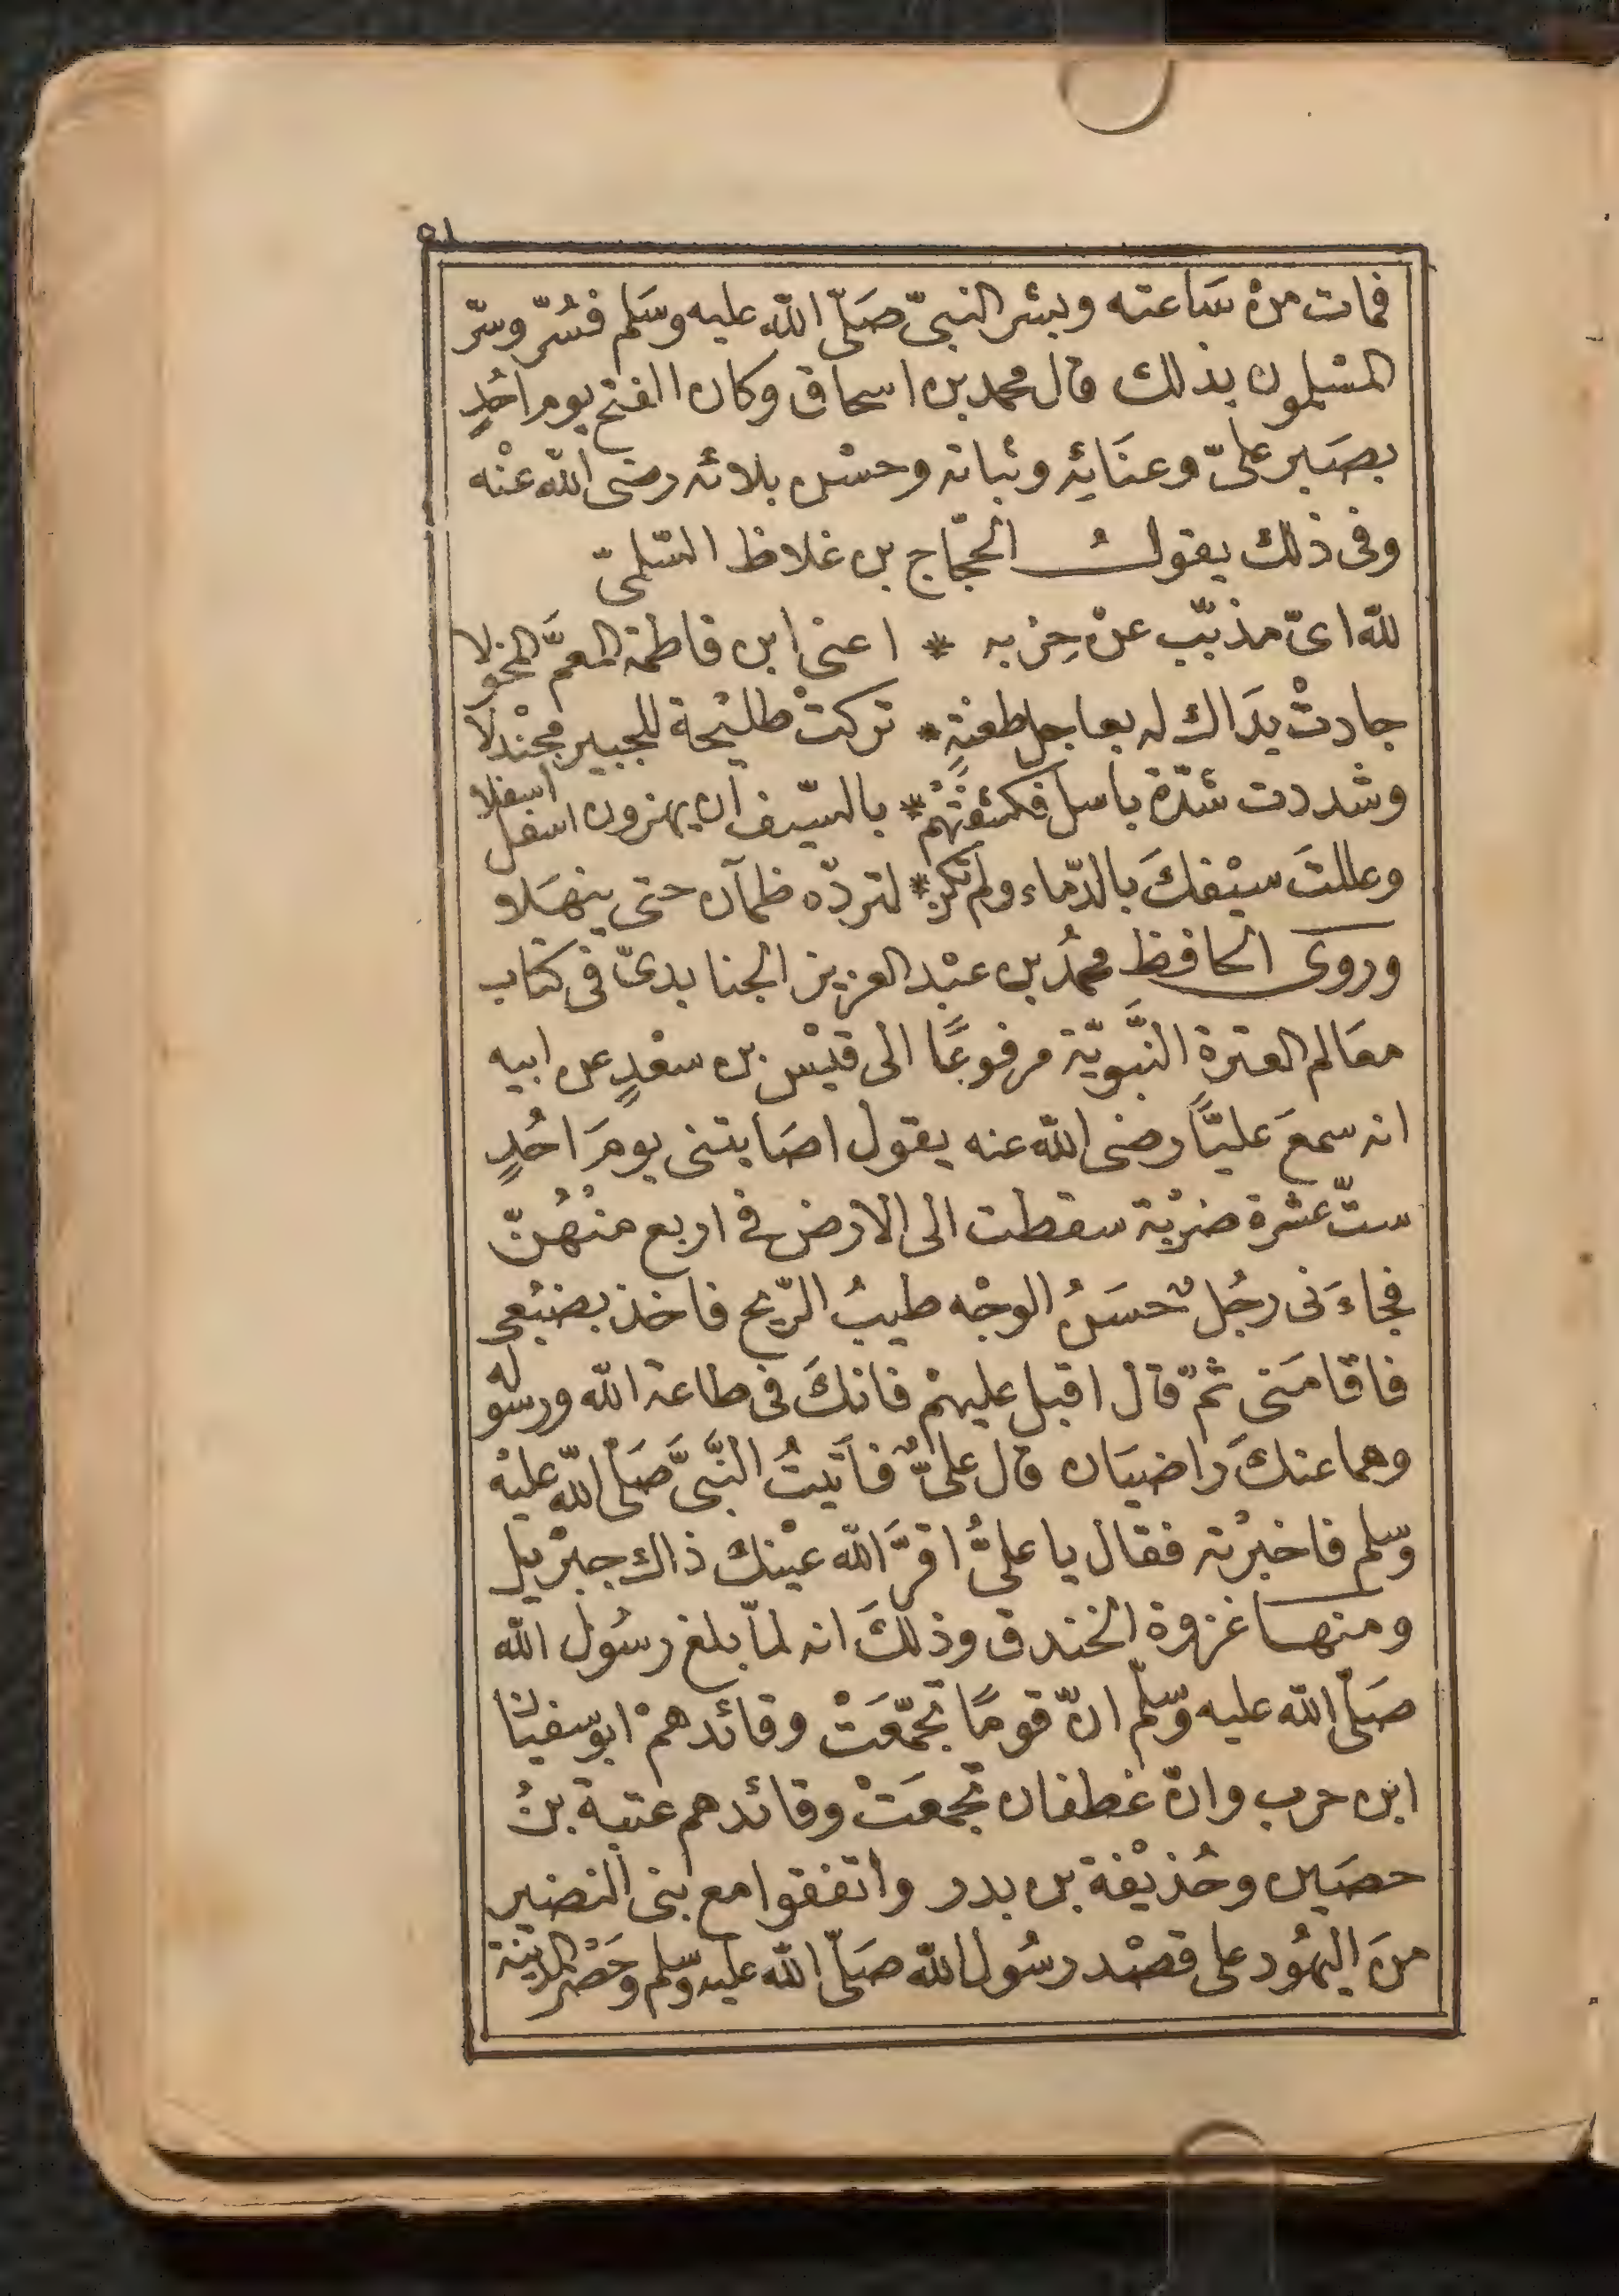 ٥١
فمات من سَاعته وبشر النبىّ صَلّى الله عليه وسَلم فسُرّ وسرّ
المسْلمون بذلك قال محمد بن اسحاق وكان الفتح يوم احُدٍ
بصَبر علىّ وعنَائِه وثباته وحسْن بلائه رضى الله عنْه
وفى ذلك يقولُ الحجّاج بن غلاظ السّلمىّ
لله اىّ مذبّب عنْ حِزبه * اعنى ابن فاطمة المعمَّ المخولا
جادتْ يدَاك له بعاجل طعنةٍ * تركتْ طليْحة للجبير مجْندلا
وشددت شدّة باسل فكشفتهُمْ * بالسّيف ان يهزون اسفل اسفلا
وعللتَ سيْفكَ بالدّماء ولم تكن * لتردّه ظمآن حتى ينهَلا
وروى الحافظ محمدُ بن عبْد العزيز الجنابدىّ فى كتاب
معَالم العترة النَّبَويّة مرفوعًا الى قيْس بن سعْدٍ عن ابيه
انه سمعَ عليًّا رضى الله عنه يقول اصَابتنى يومَ احُدٍ
ستّ عشرة ضرْبة سقطت الى الارْض فى اربع منْهُنّ
فجاءَنى رجُلٌ حسَنُ الوجْه طيبُ الرّيح فاخذ بضبْعى
فاقامَنى ثمّ قال اقبل عليهمْ فانكَ فى طاعة الله ورسوله
وهما عنكَ رَاضيَان قال علىٌّ فاَتيتُ النَّبىَّ صَلى الله عليْه
وسّلم فاخبرْته فقال يا علىُّ اقرَّ الله عيْنك ذاك جبرْيل
ومنهَا غزوة الخندق وذلكَ انه لمّا بلغ رسُول الله
صَلى الله عليه وسّلم انّ قومًا تجمّعَتْ وقائدهمْ ابو سفيْان
ابن حرب وانّ غطفان تجمعَتْ وقائدهم عتبة بنُ
حصَين وحُذيْفة بن بدر واتفقوا مع بنى النضير
منَ اليهُود على قصْد رسُول الله صَلّى الله عليه وسّلم وحَصْر المدينة